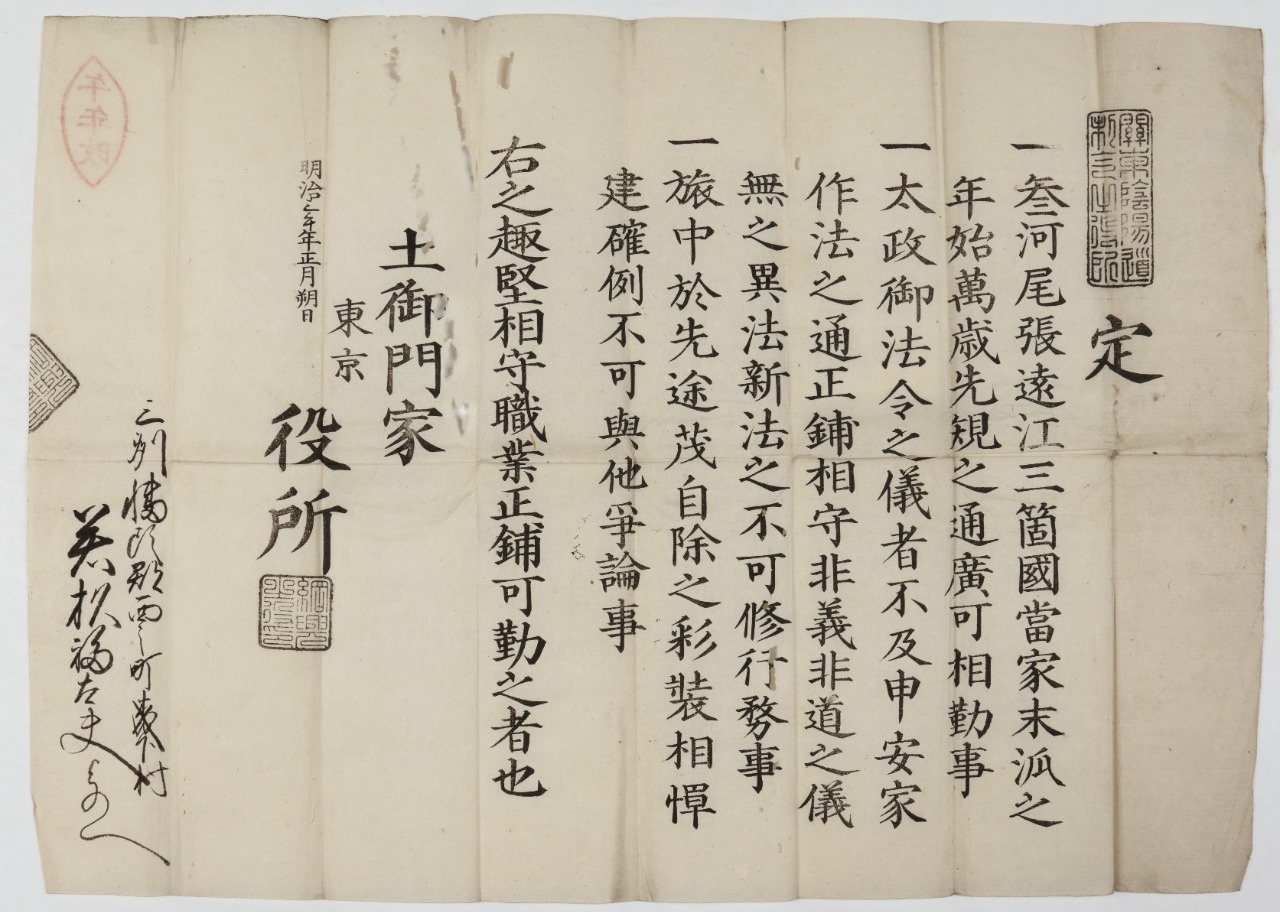 關東陰陽道
定
一叄河尾張遠江三箇國當家末派之
年始萬歳先規之通廣可相勤事
一太政御法令之儀者不及申安家
作法之通正鋪相守非義非道之儀
無之異法新法之不可修行務事
一旅中於先途茂自除之彩裝相憚
建確例不可與他爭論事
右之趣堅相守職業正鋪可勤之者也
土御門家
東京
役所
明治三年正月朔日
三州幡豆郡西之町村
若杦福太夫
午年改